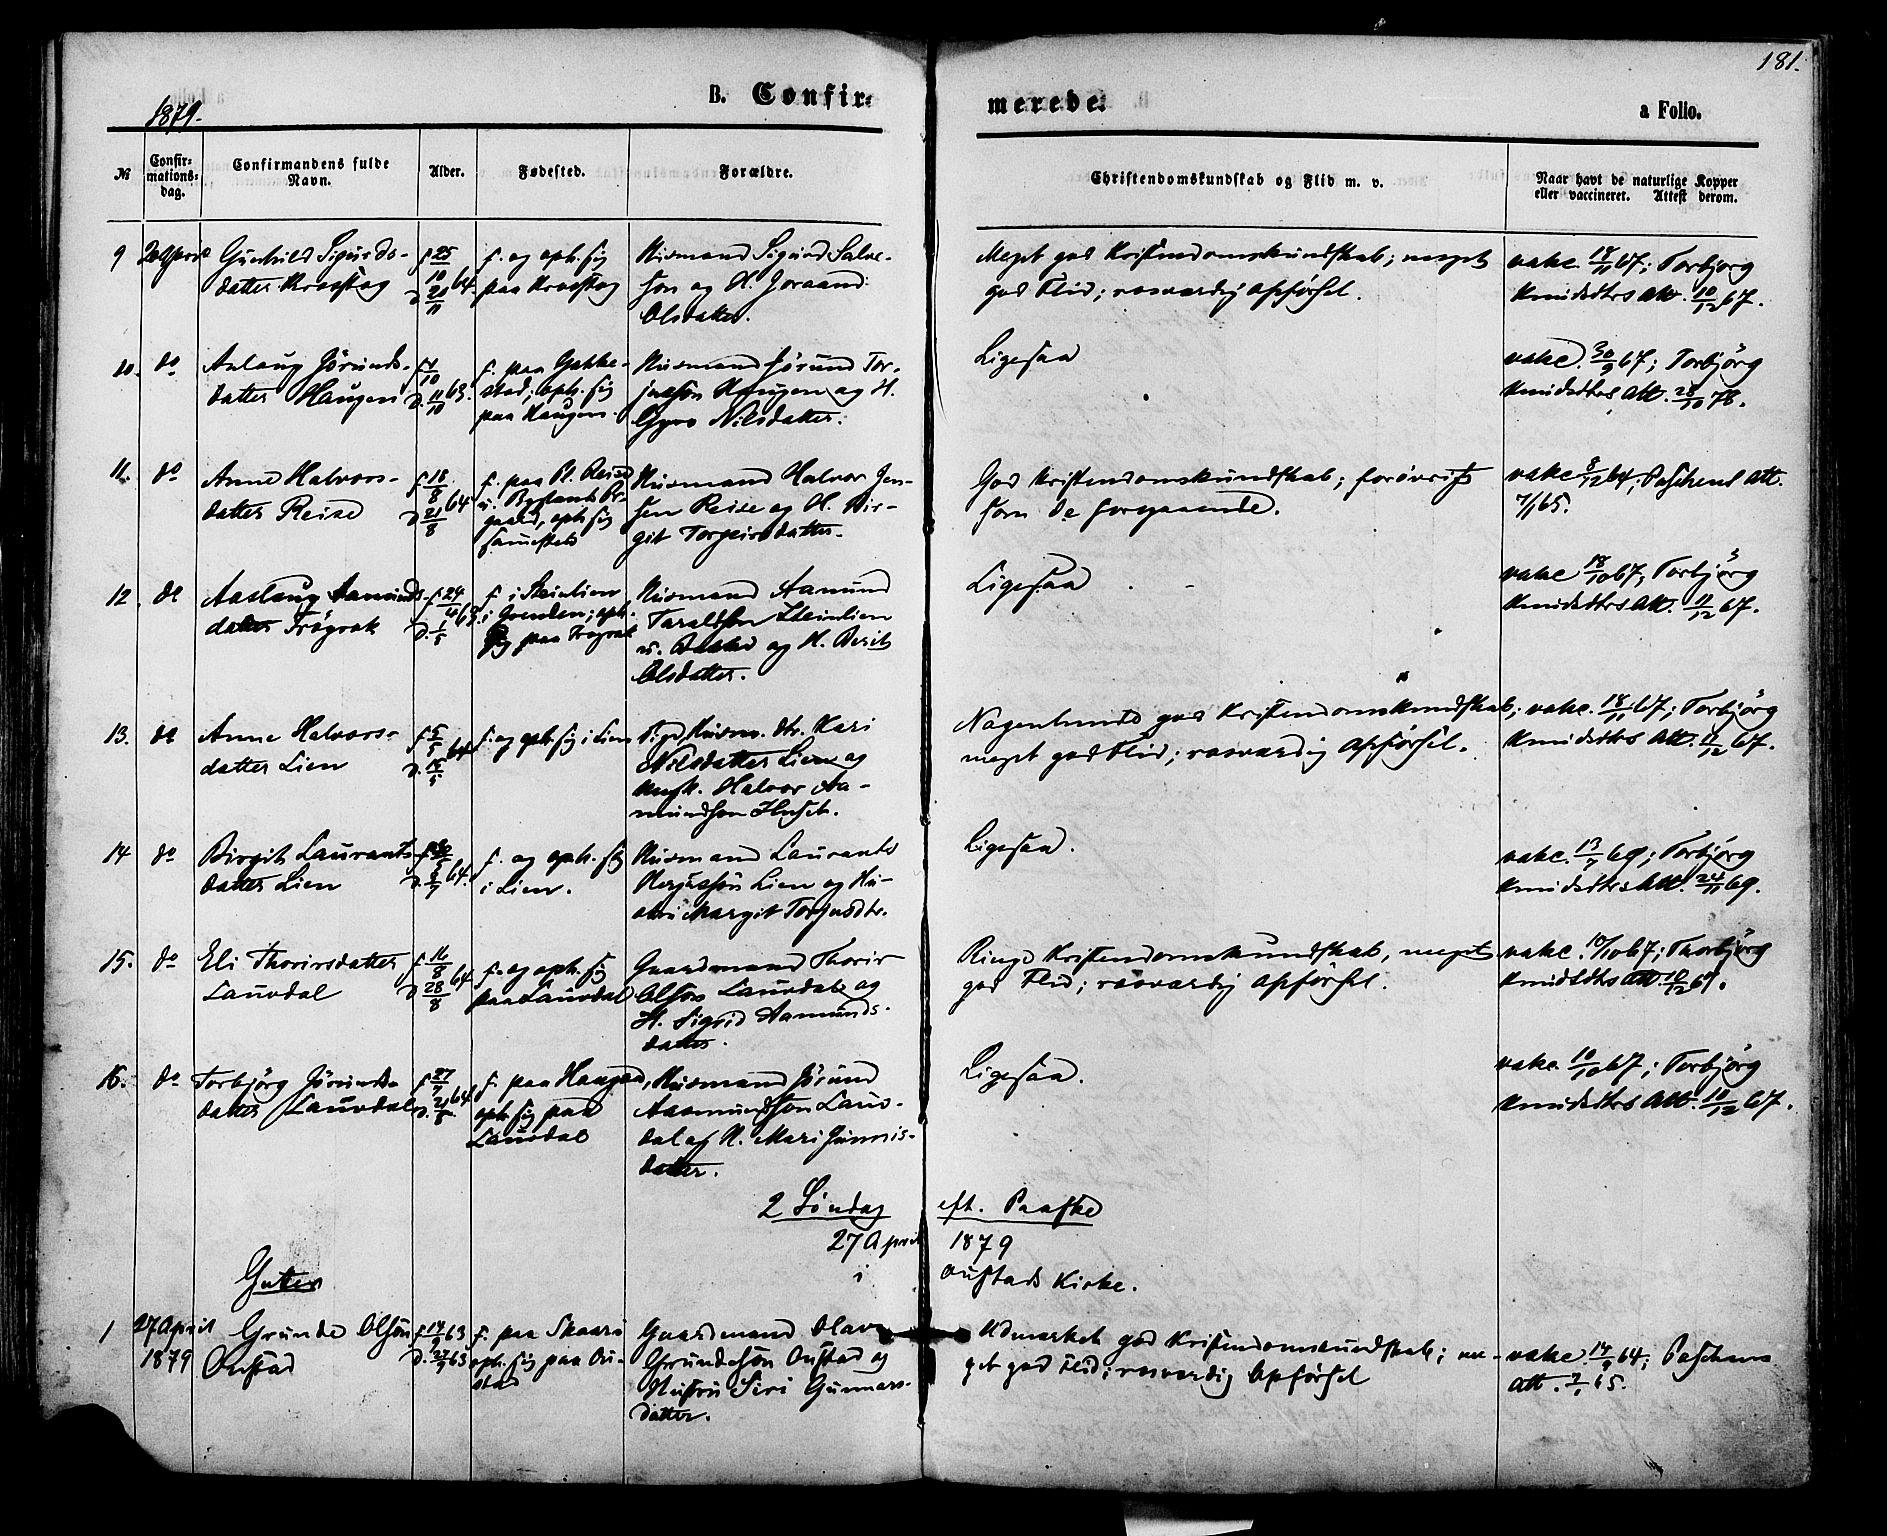 181.
1879.
B. Confir=
merede.
a Folio.
№
Confir=
mations=
dag.
Confirmandens fulde
Navn.
Alder.
Fødested.
Forældre.
Christendomskundskab og Flid m. v.
Naar havt de naturlige Kopper
eller vaccineret. Attest derom.
9 20 April Gunhild Sigurds-
datter
f. 25/10 64.
d. 21/11
f. og oph. sig
paa
Husmand Sigurd Salve-
sen og H. Joraand
Olsdatter.
Meget god Kristendomskundskab; meget
god Flid; rosværdig Opførsel.
vakc. 18/11 67; Torbjørg
Knudsdtrs Att. 10/12 67.
10. do Aslaug Jørunds-
datter Haugen
d. 11/10 63.
f. paa
stad; oph. sig
paa Haugen.
Husmand Jørund Tor-
jussøn Haugen og H.
Gyro Nilsdatter.
Ligesaa
vakc. 30/9 67; Torbjörg
Knudsdtrs Att. 28/10 78.
11. do Anne Halvors-
datter Reise
f. 18/8 64
d. 21/8
f. paa Pl. Reise
oph. sig
sammesteds
Husmand Halvor Jen-
sen Reise og H. Bir-
git Torgeirsdatter.
God Kristendomskundskab; forøvrigt
som de foregaaende.
vakc 8/12 64; Paschens Att.
7/1 65.
12. do Aaslaug Aamunds-
datter Trögrak
f. 24/4 63.
d. 1/5
f i Steinlien
i Grenden; oph.
sig paa Trögrak
Husmand Aamund
Taraldsøn Steinlien
og H. Berit
Olsdatter.
Ligesaa
vakc 18/10 67; Torbjörg
Knudsdtrs Att. 11/12 67.
13. do Anne Halvors-
datter Lien
f. 5/5 64
d. 15/5
f. og oph. sig i Lien
Pige Husm. dtr. Kari
Nilsdatter Lien og
Ungk. Halvor Aa-
mundsøn
Nogenlunde god Kristendomskundskab;
meget god Flid; rosværdig Opførsel.
vakc. 18/11 67; Torbjörg
Knudsdtrs Att. 11/12 67.
14 do Birgit Laurants
datter Lien
64.
f. og oph. sig
i Lien.
Husmand Laurants
Lien og Hu-
stru Margit Torjusdtr.
Ligesaa.
vakc. 13/7 69; Torbjørg
Knudsdtrs Att. 24/11 69.
15. do Eli Thorirsdatter
Laurdal
f. 16/8 64
d. 28/8
f. og oph. sig
paa Laurdal
Gaardmand Thorir
Olsøn Laurdal og
H. Sigrid Aamunds-
datter.
Ringe Kristendomskundskab, meget
god Flid; rosværdig Opførsel.
vakc. 10/10 67; Thorbjörg
Knudsdtrs Att. 10/12 67.
16. do Torbjörg Jørunds-
datter Laurdal
f. 27/7 64
f. paa Haugen,
oph. sig paa
Laurdal
Husmand Jørund
Aasmundsøn Laur-
dal og H. Mari Gunnis-
datter.
Ligesaa.
vakc. 10/10 67; Torbjörg
Knudsdtrs Att. 10/12 67.
2 Söndag eft. Paaske
27 April 1879
i Oustads Kirke.
Gutter
1 27 April
1879
Grunde Olsøn
Oustad
f. 14/9 63
d. 27/9 63
f. paa Skaaru
oph. sig paa Ou-
stad
Gaardmand Olav
Grundesøn Oustad og
Hustru Siri Gunnars-
datter.
Udmærket god Kristendomskundskab; me-
get god Flid; rosværdig Opførsel
vakc 14/9 64; Paschens
Att. 7/1 65.